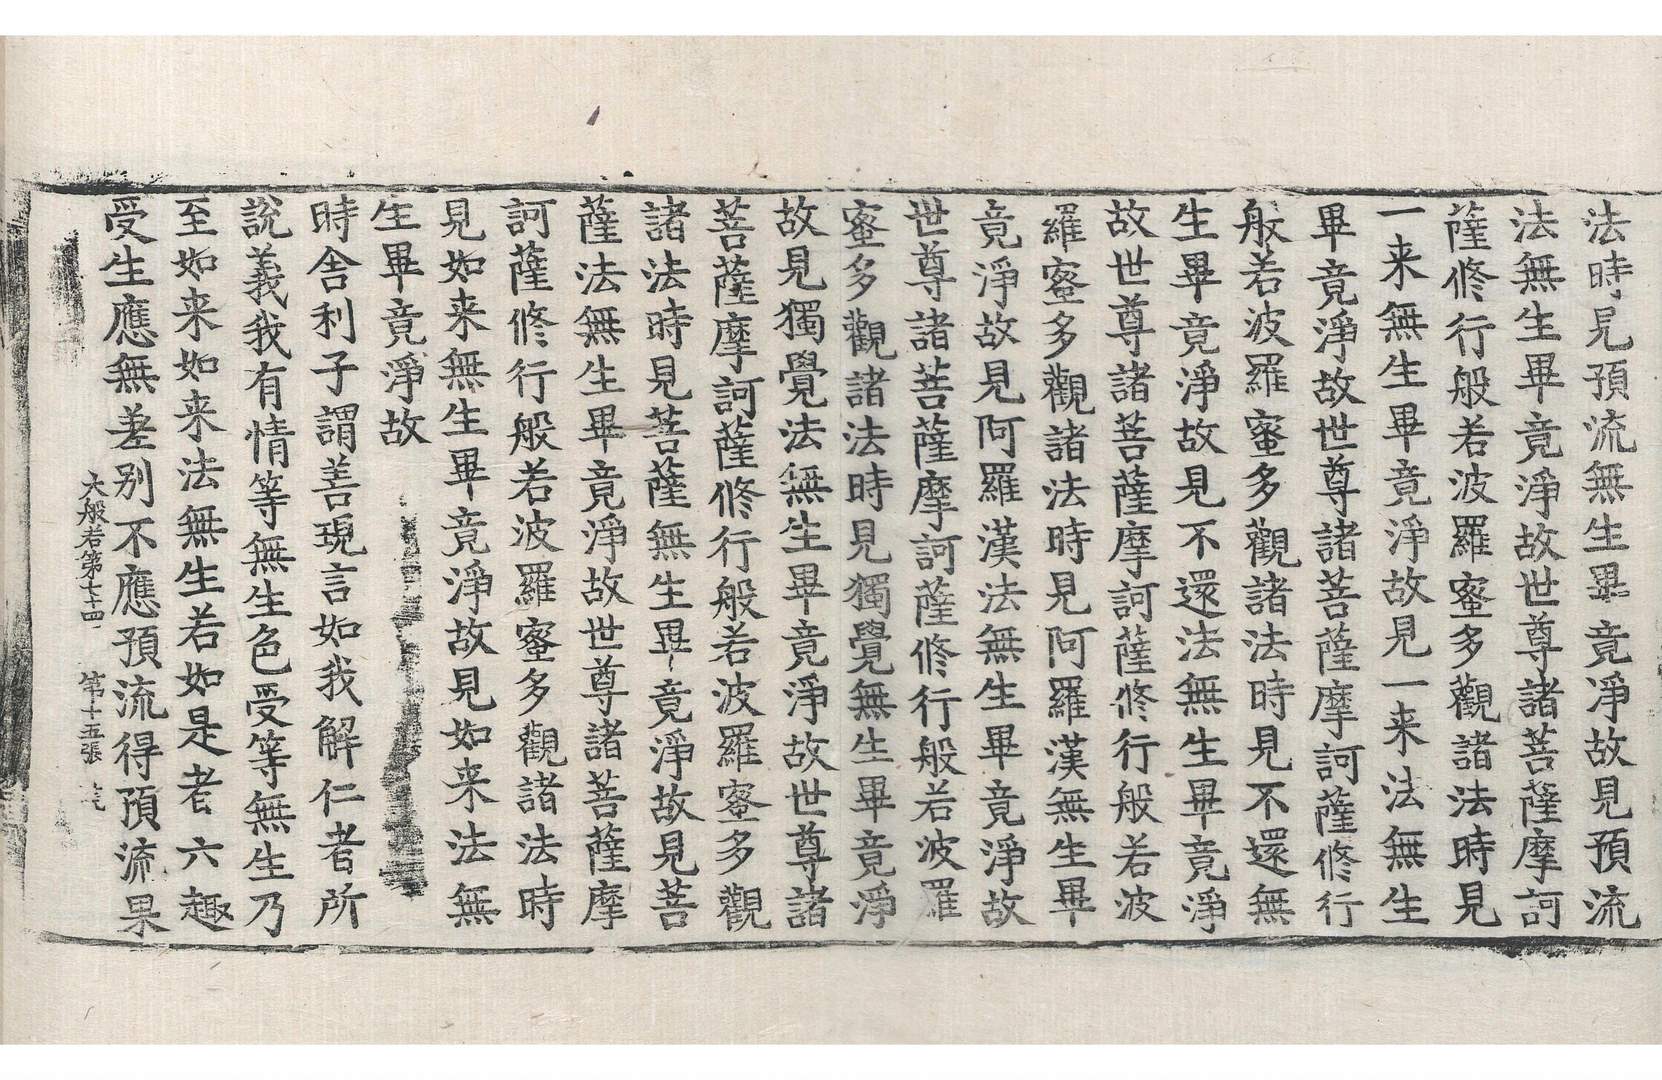 法時見預流無生畢竟淨故見預流
法無生畢竟淨故世尊諸菩薩摩訶
薩修行般若波羅蜜多觀諸法時見
一来無生畢竟淨故見一来法無生
畢竟淨故世尊諸菩薩摩訶薩修行
般若波羅蜜多觀諸法時見不還無
生畢竟淨故見不還法無生畢竟淨
故世尊諸菩薩摩訶薩修行般若波
羅蜜多觀諸法時見阿羅漢無生畢
竟淨故見阿羅漢法無生畢竟淨故
世尊諸菩薩摩訶薩修行般若波羅
蜜多觀諸法時見獨覺無生畢竟淨
故見獨覺法無生畢竟淨故世尊諸
菩薩摩訶薩修行般若波羅蜜多觀
諸法時見菩薩無生畢竟淨故見菩
薩法無生畢竟淨故世尊諸菩薩摩
訶薩修行般若波羅蜜多觀諸法時
見如来無生畢竟淨故見如来法無
生畢竟淨故
時舍利子謂善現言如我解仁者所
說義我有情等無生色受等無生乃
至如来如来法無生若如是者六趣
受生應無差别不應預流得預流果
大般若第七十四 第十五張